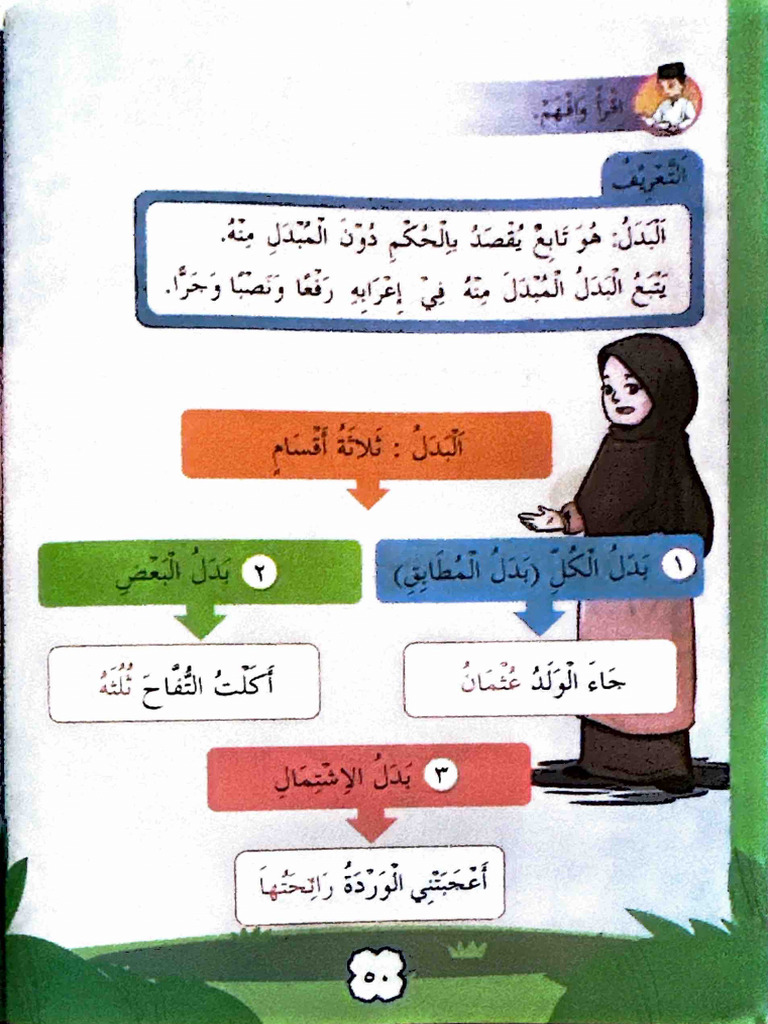 اِقْرَأْ وَافْهَمْ.
اَلتَّعْرِيْفُ
اَلْبَدَلُ: هُوَ تَابِعٌ يُقْصَدُ بِالْحُكْمِ دُوْنَ الْمُبْدَلِ مِنْهُ.
يَتْبَعُ الْبَدَلُ الْمُبْدَلَ مِنْهُ فِيْ إِعْرَابِهِ رَفْعًا وَنَصْبًا وَجَرًّا.
اَلْبَدَلُ : ثَلاثَةُ أَقْسَامٍ
١ بَدَلُ الْكُلِّ (بَدَلُ الْمُطَابِقِ)
٢ بَدَلُ الْبَعْضِ
جَاءَ الْوَلَدُ عُثْمَانُ
أَكَلْتُ التُّفَّاحَ ثُلُثَهُ
٣ بَدَلُ الاِشْتِمَالِ
أَعْجَبَتْنِي الْوَرْدَةُ رَائِحَتُهاَ
٥٠